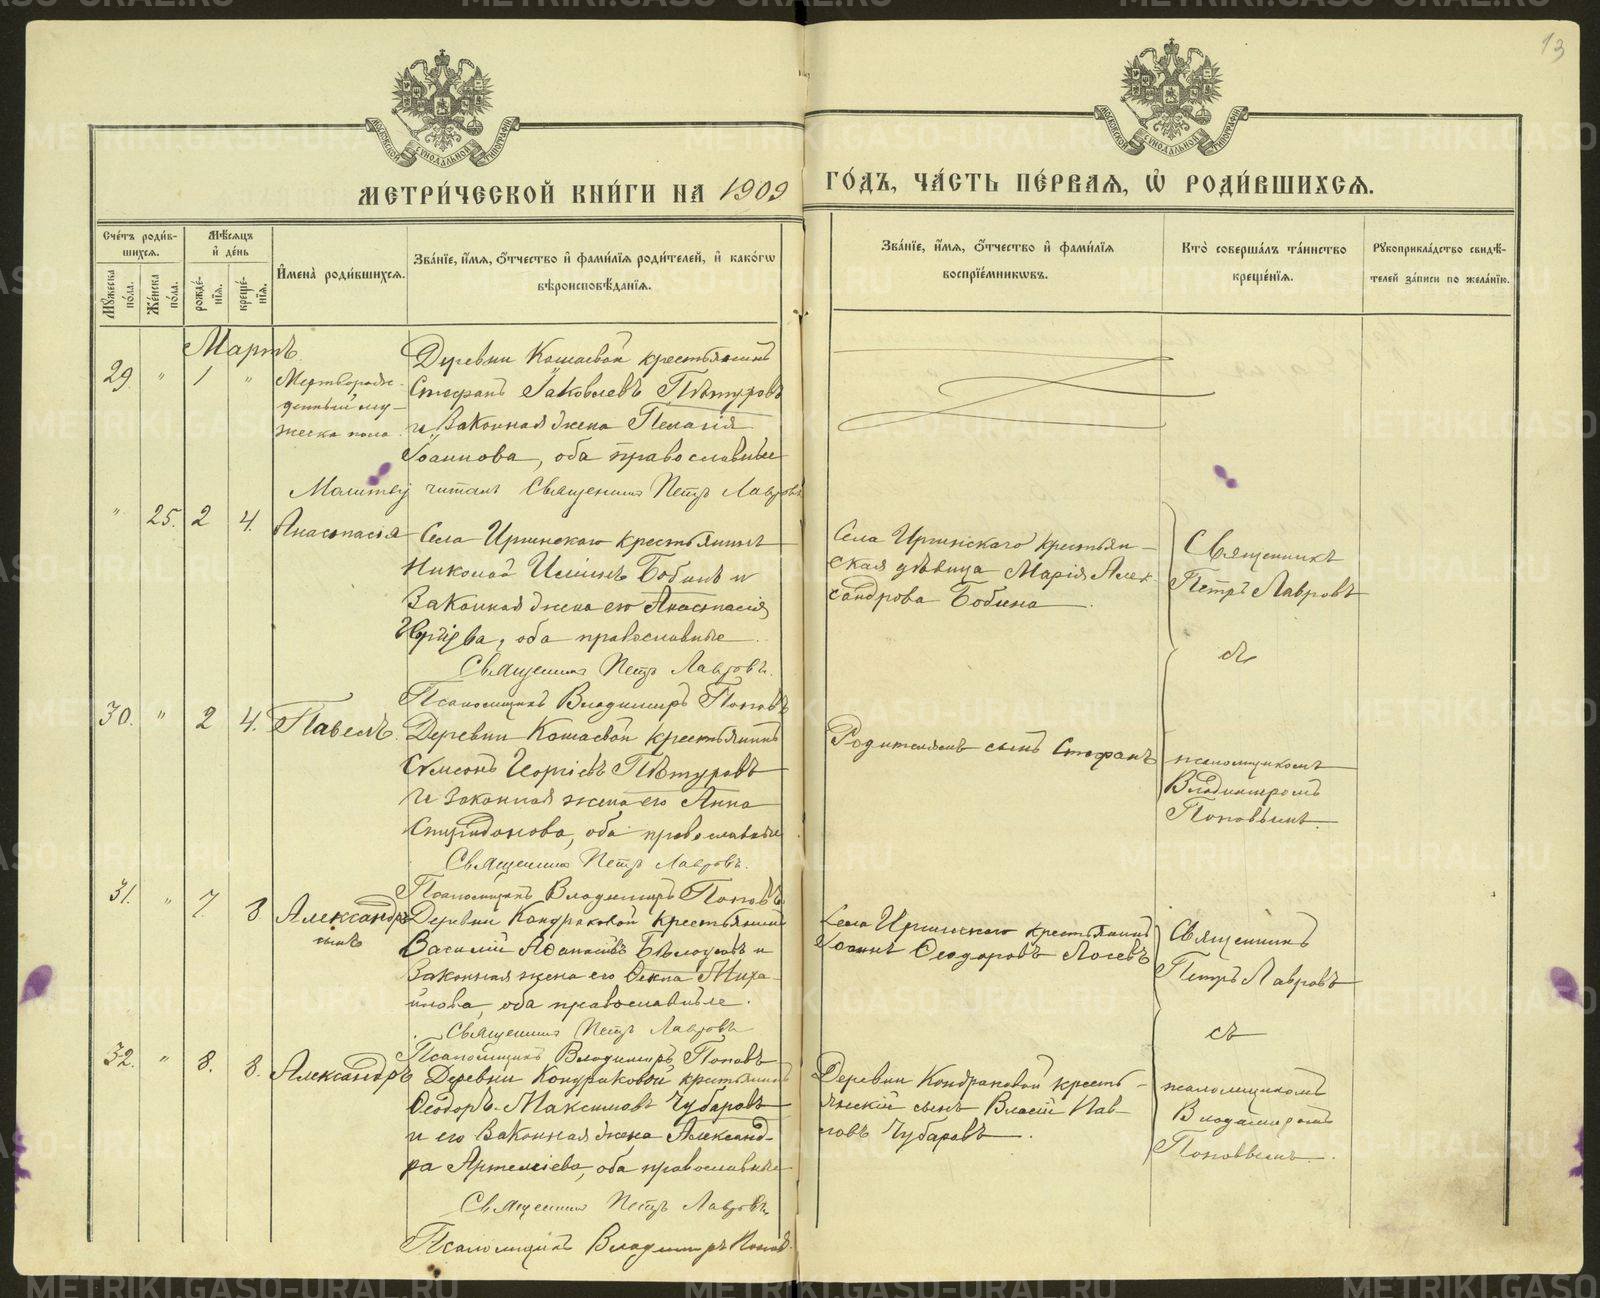 13
МЕТРИ́ЧЕСКОЙ КНИ́ГИ НА 1909 ГО́ДЪ, ЧА́СТЬ ПЕ́РВАЯ, Ѡ҆ РОДИ́ВШИХСЯ.
Сче́тъ роди́в-
шихся.
Мꙋ́жеска по́ла.
Же́нска по́ла.
Мѣ́сяцъ
и҆ де́нь
рожде́-
нїя.
креще́-
нїя.
И҆мена̀ роди́вшихся.
Зва́нїе, и҆́мя, ѻ҆́тчество и҆ фами́лїя роди́телей, и҆ како́гѡ
вѣроисповѣ́данїя.
Зва́нїе, и҆́мя, ѻ҆́тчество и҆ фами́лїя
воспрїе́мникѡвъ.
Кто̀ соверша́лъ та́инство
креще́нїя.
Рꙋкоприкла́дство свидѣ́-
телей за́писи по жела́нїю.
Мартъ
29. " 1 "
Мертворож-
денный му-
жеска пола.
Деревни Кошаевой крестьянинъ
Стефанъ Іаковлевъ Пѣтуховъ
и законная жена Пелагія
Іоаннова, оба православные
Молитву читалъ Священникъ Петръ Лавровъ
" 25. 2 4.
Анастасія
Села Иргинскаго крестьянинъ
Николай Ильинъ Бобинъ и
законная жена его Анастасія
оба православные.
Священникъ Петръ Лавровъ.
Псаломщикъ Владимиръ Поповъ
Села Иргинскаго крестьян-
ская дѣвица Марія Алек-
сандрова Бобина.
Священникъ
Петръ Лавровъ
съ
псаломщикомъ
Владимиромъ
Поповымъ.
30. " 2 4.
Павелъ.
Деревни Кошаевой крестьянинъ
Сѵмеонъ Георгіевъ Пѣтуховъ
и законная жена его Анна
Спиридонова, оба православные
Священникъ Петръ Лавровъ.
Псаломщикъ Владимиръ Поповъ
Родителямъ сынъ Стефанъ
31. " 7. 8
Александръ
сынъ
Деревни Кондраковой крестьянинъ
Василій и
законная жена его Ѳекла Миха-
йлова, оба православные.
Священникъ Петръ Лавровъ
Псаломщикъ Владимиръ Поповъ
Села Иргинскаго крестьянинъ
Іоаннъ Ѳеодоровъ Лосевъ
Священникъ
Петръ Лавровъ
съ
псаломщикомъ
Владимиромъ
Поповымъ.
32. " 8. 8.
Александръ
Деревни Кондраковой крестьянинъ
Ѳеодоръ Максимовъ Чубаровъ
и его законная жена Александ-
ра Артеміева, оба православные
Священникъ Петръ Лавровъ,
Псаломщикъ Владимиръ Поповъ.
Деревни Кондраковой кресть-
янскій сынъ Власій Пав-
ловъ Чубаровъ.
METRIKI.GASO-URAL.RU